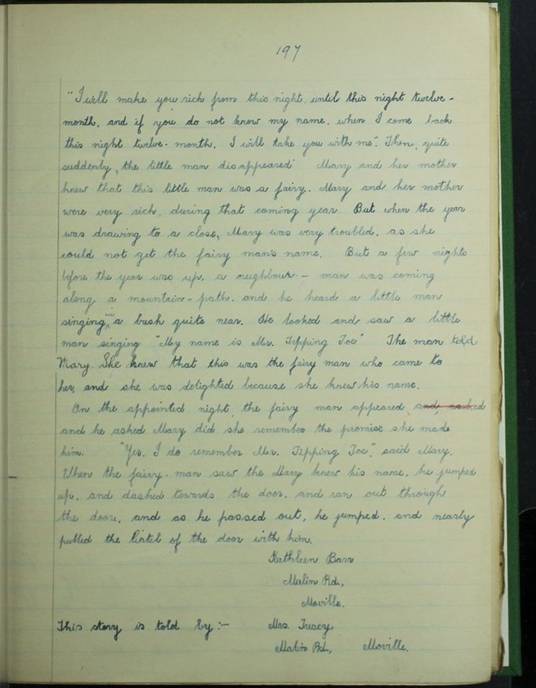 197
"I will make you rich from this night, until this night twelve-
month, and if you do not know my name, when I come back
this night twelve-month, I will take you with me". Then, quite
suddenly, the little man disappeared. Mary and her mother
knew that this little man was a fairy. Mary and her mother
were very rich, during that coming year. But when the year
was drawing to a close, Mary was very troubled, as she
could not get the fairy man's name. But a few nights
before the year was up, a neighbour-man was coming
along a mountain-path, and he heard a little man
singing, a bush quite near. He looked and saw a little
man singing "My name is Mr. Tipping Toe". The man told
Mary. She knew that this was the fairy man who came to
her, and she was delighted because she knew his name.
On the appointed night, the fairy man appeared, and asked
and he asked Mary did she remember the promise she made
him. "Yes, I do remember Mr. Tipping Toe", said Mary.
When the fairy-man saw the Mary knew his name, he jumped
up, and dashed towards the door, and ran out through
the door, and as he passed out, he jumped, and nearly
pulled the lintel of the door with him.
Kathleen Barr
Malin Rd.,
Moville.
This story is told by:- Mrs. Treacy,
Malin Rd., Moville.